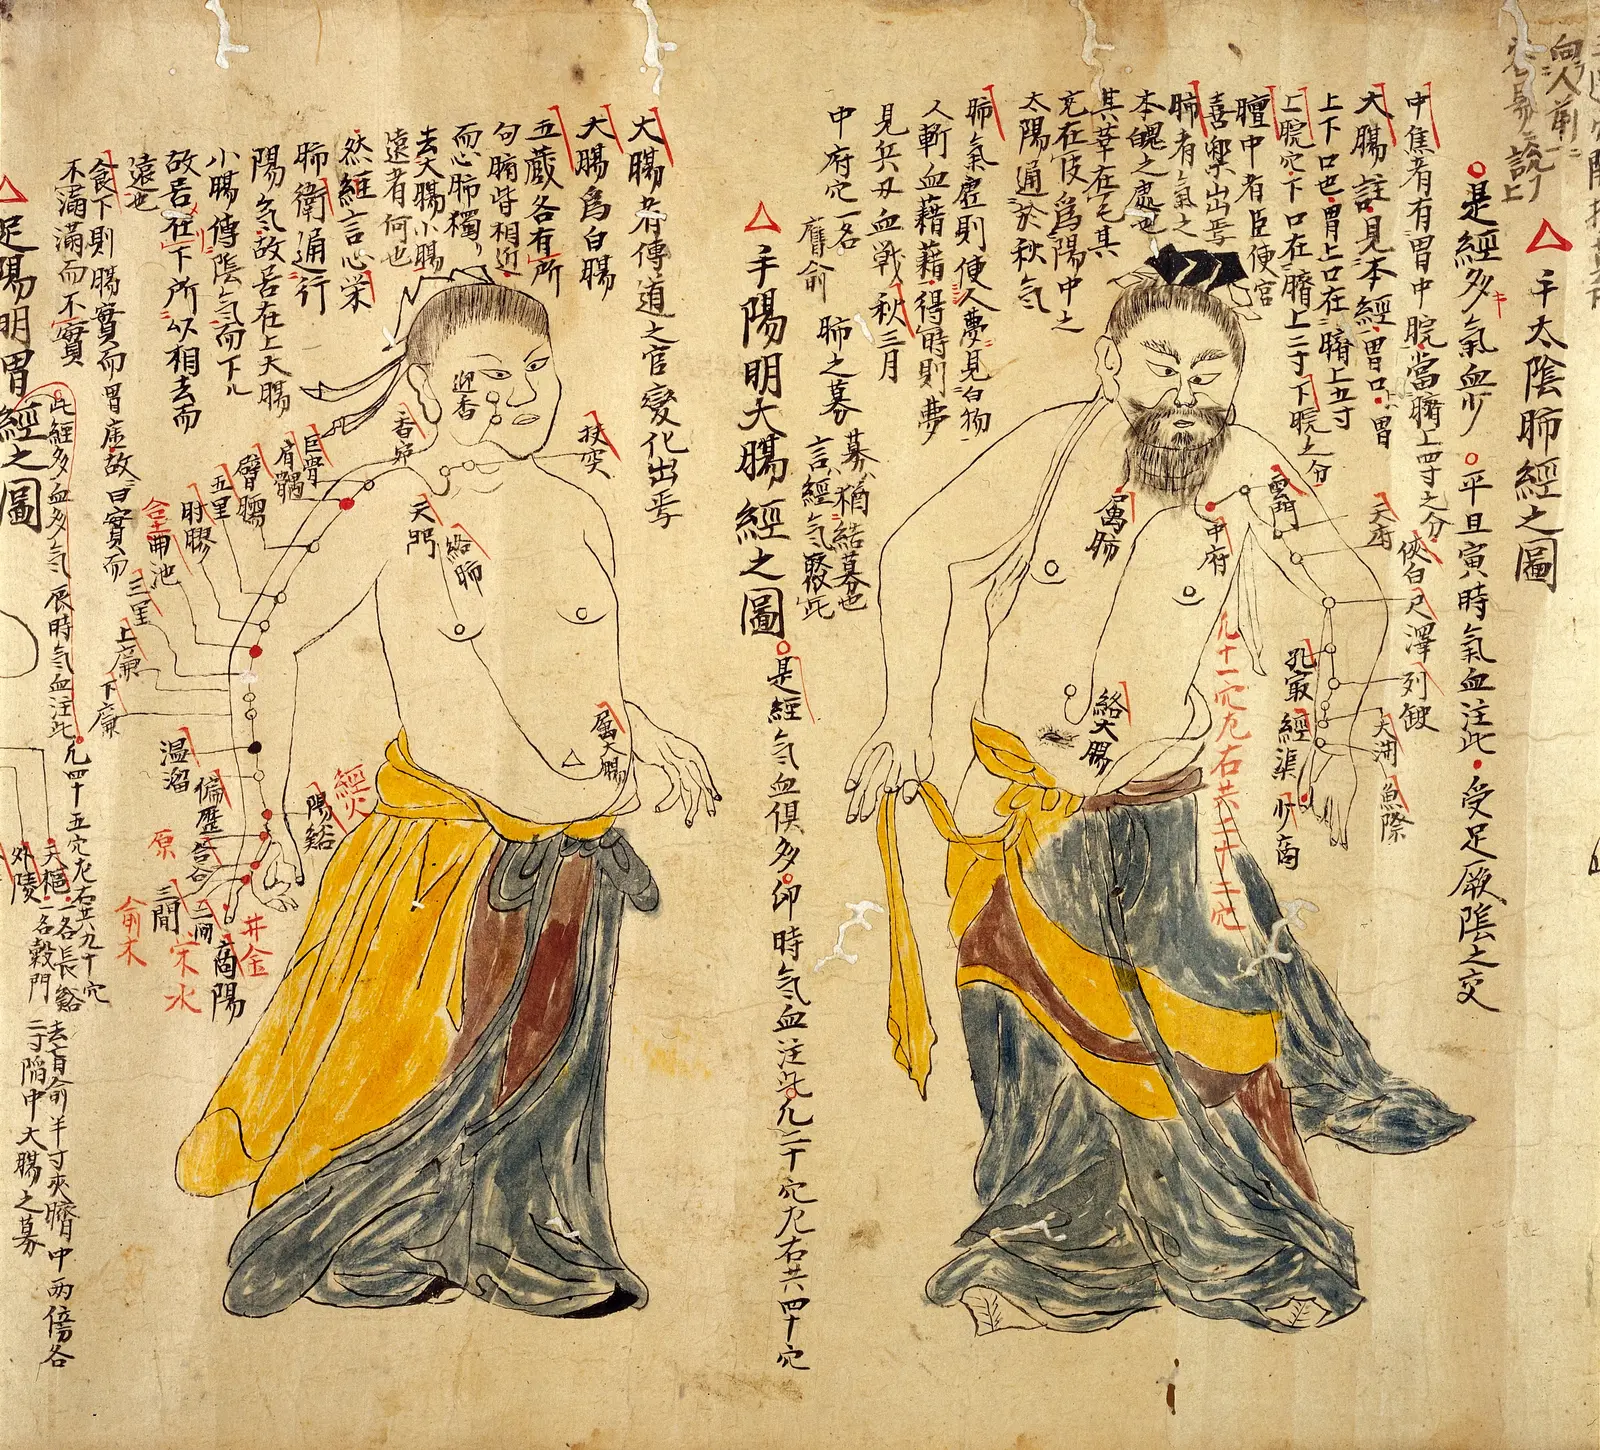 向人前ニ
手太陰肺經之圖
是經多氣血少 平旦寅時氣血注此 受足厥陰之交
中焦者有胃中脘當臍上四寸之分
大腸註見本經胃口胃
上下口也胃上口在臍上五寸
上脘穴下口在臍上二寸下脘之分
膻中者臣使宮
喜樂出焉
肺者氣之
本魄之處也
其華在毛其
充在皮為陽中之
太陽通於秋氣
肺氣虚則使人夢見白物
人斬血藉藉得時則夢
見兵刃血戰秋三月
中府穴一名
膺俞 肺之募
募猶結募也
言經氣聚此
雲門
中府
天府
俠白
尺澤
列缺
孔最
經渠
太渕
魚際
少商
屬肺
絡大腸
九十一穴左右共二十二穴
手陽明大腸經之圖
是經氣血俱多卯時氣血注此凡二十穴左右共四十穴
大腸者傳道之官變化出焉
大腸為白腸
五藏各有所
句腑皆相近
而心肺獨
去大腸小腸
遠者何也
然經言心栄
肺衛通行
陽氣故居在上大腸
小腸傳陰氣而下
故居在下所以相去而
遠也
食下則腸實而胃虚故曰實而
不滿滿而不實
迎香
扶突
天門
絡肺
巨骨
肩髃
臂臑
五里
肘髎
合土
曲池
三里
上廉
下廉
温溜
偏歴
陽谿
經火
合谷
原
三間
俞木
二間
栄水
商陽
井金
屬大腸
足陽明胃經之圖
此經多血多氣辰時氣血注此
凡四十五穴左右共九十穴
外陵
天樞
一名長谿
一名穀門
去肓俞半寸夾臍中両傍各
二寸陥中大腸之募